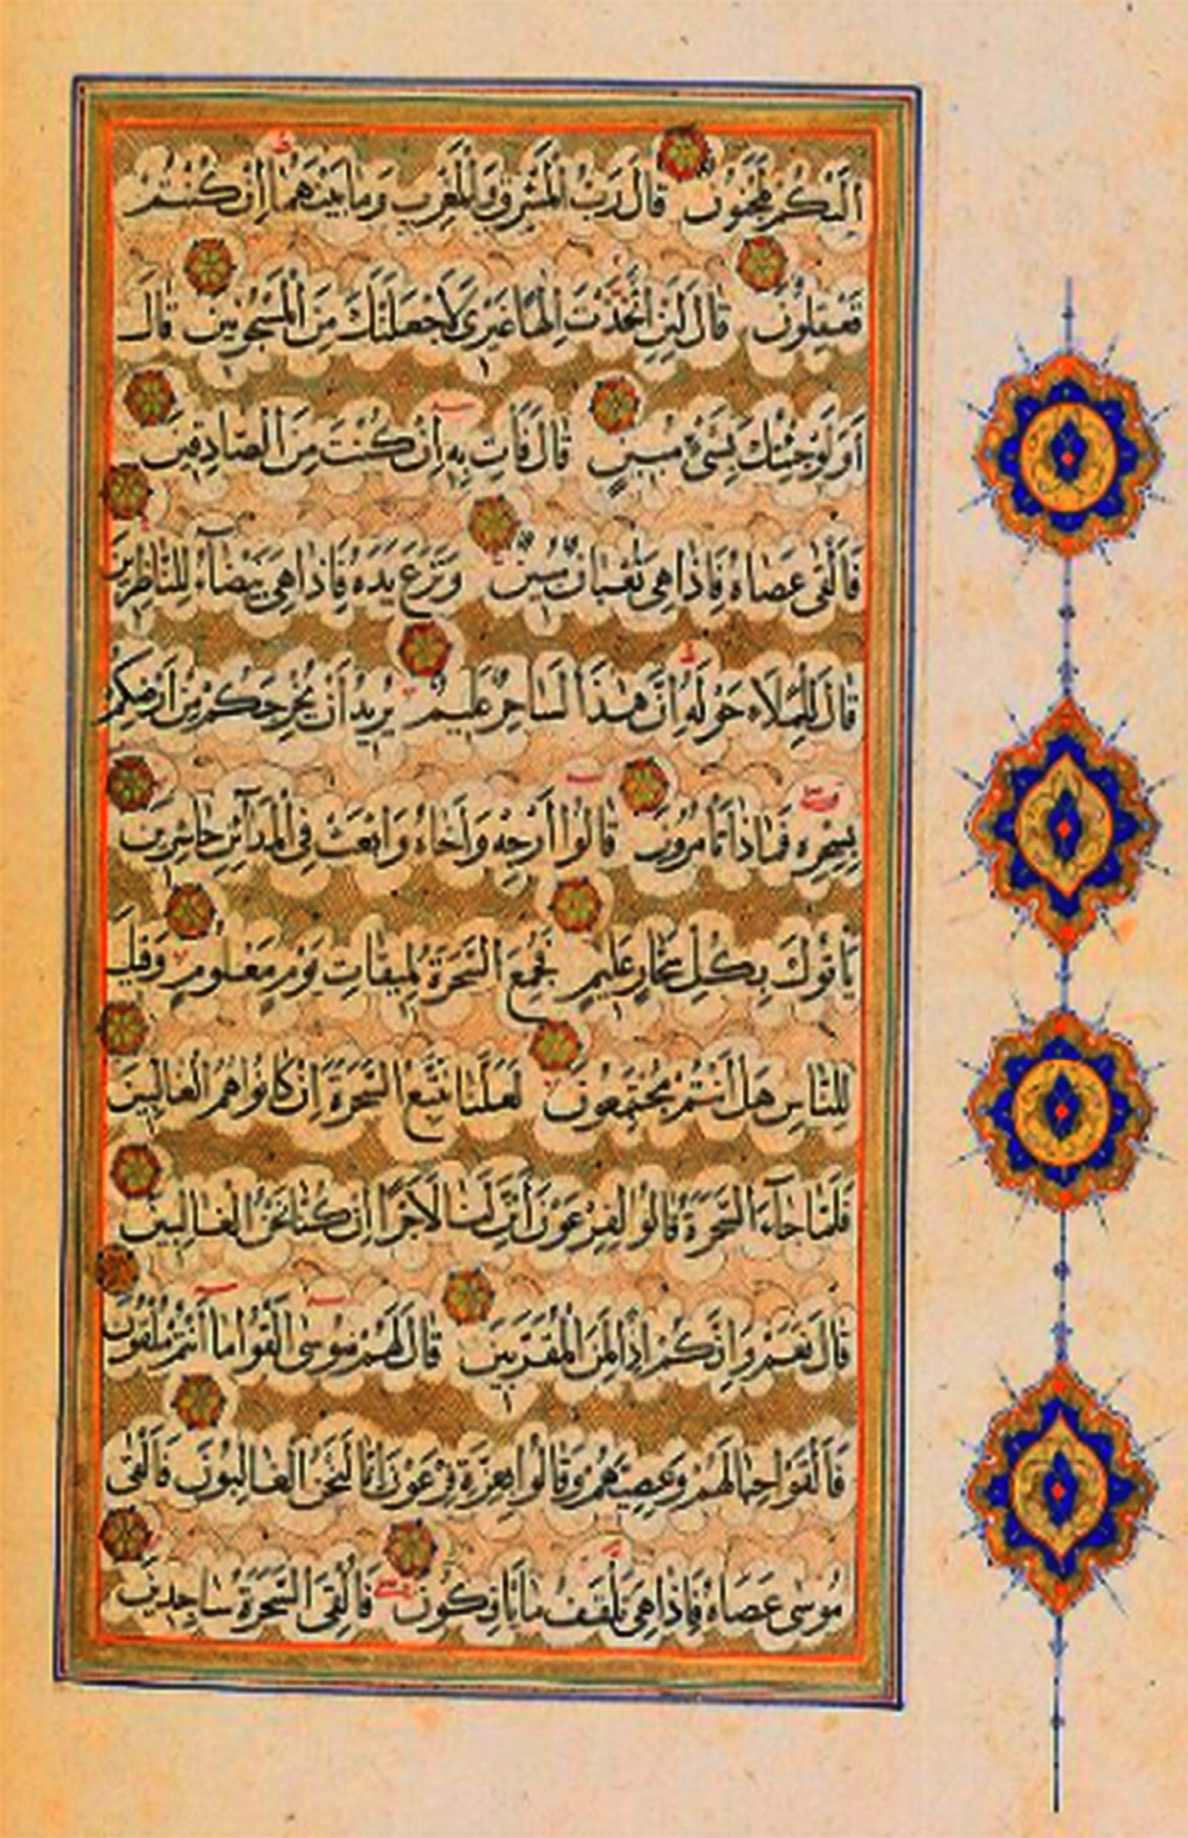 اِلَيْكُمْ لَمَجْنُونٌ قَالَ رَبُّ الْمَشْرِقِ وَالْمَغْرِبِ وَمَا بَيْنَهُمَا اِنْ كُنْتُمْ
تَعْقِلُونَ قَالَ لَئِنِ اتَّخَذْتَ اِلٰهًا غَيْرِى لَاَجْعَلَنَّكَ مِنَ الْمَسْجُونِينَ قَالَ
اَوَلَوْ جِئْتُكَ بِشَىْءٍ مُبِينٍ قَالَ فَاْتِ بِهِ اِنْ كُنْتَ مِنَ الصَّادِقِينَ
فَاَلْقٰى عَصَاهُ فَاِذَا هِىَ ثُعْبَانٌ مُبِينٌ وَنَزَعَ يَدَهُ فَاِذَا هِىَ بَيْضَآءُ لِلنَّاظِرِينَ
قَالَ لِلْمَلَاِ حَوْلَهُ اِنَّ هٰذَا لَسَاحِرٌ عَلِيمٌ يُرِيدُ اَنْ يُخْرِجَكُمْ مِنْ اَرْضِكُمْ
بِسِحْرِهِ فَمَاذَا تَاْمُرُونَ قَالُوا اَرْجِهْ وَاَخَاهُ وَابْعَثْ فِى الْمَدَآئِنِ حَاشِرِينَ
يَاْتُوكَ بِكُلِّ سَحَّارٍ عَلِيمٍ فَجُمِعَ السَّحَرَةُ لِمِيقَاتِ يَوْمٍ مَعْلُومٍ وَقِيلَ
لِلنَّاسِ هَلْ اَنْتُمْ مُجْتَمِعُونَ لَعَلَّنَا نَتَّبِعُ السَّحَرَةَ اِنْ كَانُوا هُمُ الْغَالِبِينَ
فَلَمَّا جَآءَ السَّحَرَةُ قَالُوا لِفِرْعَوْنَ اَئِنَّ لَنَا لَاَجْرًا اِنْ كُنَّا نَحْنُ الْغَالِبِينَ
قَالَ نَعَمْ وَاِنَّكُمْ اِذًا لَمِنَ الْمُقَرَّبِينَ قَالَ لَهُمْ مُوسٰى اَلْقُوا مَا اَنْتُمْ مُلْقُونَ
فَاَلْقَوْا حِبَالَهُمْ وَعِصِيَّهُمْ وَقَالُوا بِعِزَّةِ فِرْعَوْنَ اِنَّا لَنَحْنُ الْغَالِبُونَ فَاَلْقٰى
مُوسٰى عَصَاهُ فَاِذَا هِىَ تَلْقَفُ مَا يَاْفِكُونَ فَاُلْقِىَ السَّحَرَةُ سَاجِدِينَ